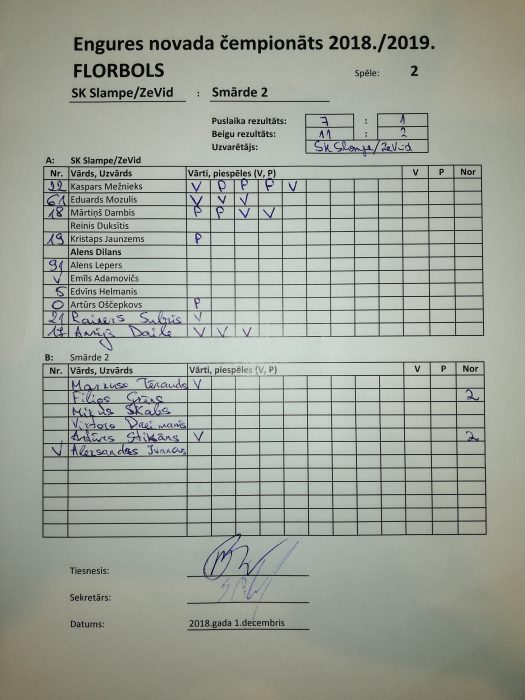 Engures novada čempionāts 2018./2019.
FLORBOLS Spēle: 2
SK Slampe/ZeVid : Smārde 2
Puslaika rezultāts: 7 : 1
Beigu rezultāts: 11 : 2
Uzvarētājs: SK Slampe/ZeVid
A: SK Slampe/ZeVid
Nr. Vārds, Uzvārds Vārti, piespēles (V, P) V P Nor
22 Kaspars Mežnieks V P P P V
61 Eduards Mozulis V V V
18 Mārtiņš Dambis P P V V
Reinis Duksītis
19 Kristaps Jaunzems P
Alens Dilans
91 Alens Lepers
V Emīls Adamovičs
5 Edvīns Helmanis
0 Artūrs Oščepkovs P
21 V
17 V V V
B: Smārde 2
Nr. Vārds, Uzvārds Vārti, piespēles (V, P) V P Nor
Markuss Tērauds V
Filips 2
Skabs
Viktors
Artūrs V 2
V Aleksandrs
Tiesnesis:
Sekretārs:
Datums: 2018.gada 1.decembris